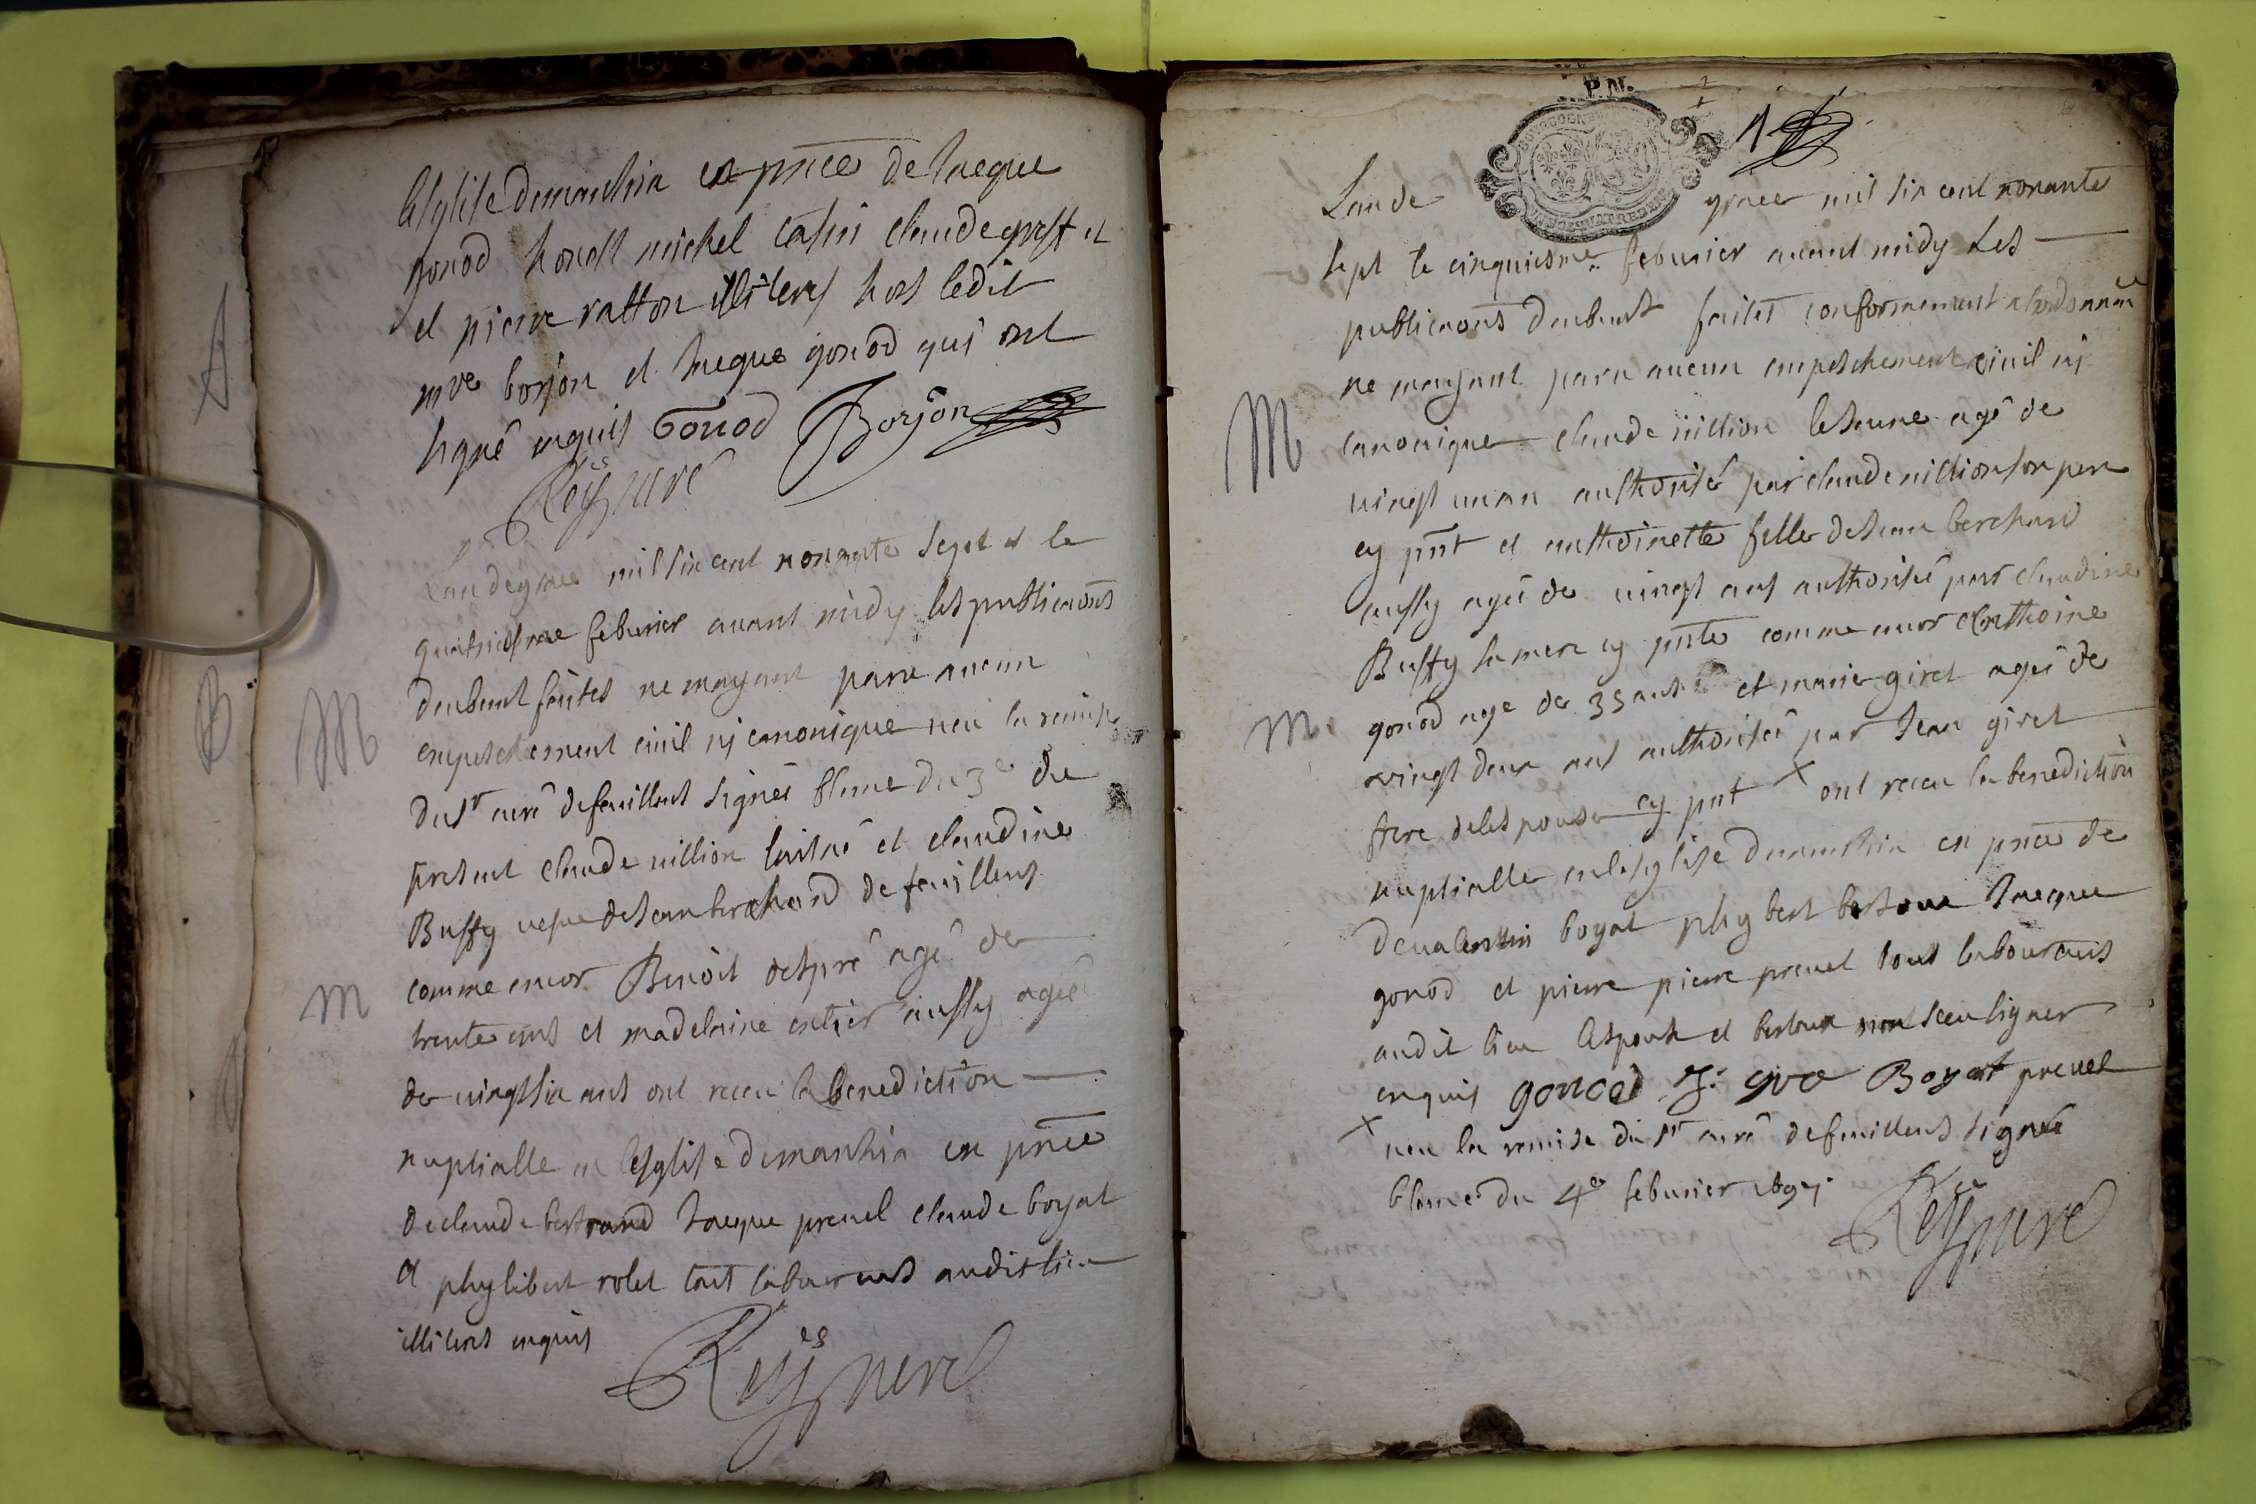 lesglise demanthia en pnce de Jacque
gonod honest michel Cassin claude
et pierre ratton illiteres hors ledit
mre borjon et Jacque gonod qui ont
signé enquis Gonod Borjon
Reÿ curé
Lan de grace mil six cent nonante sept et le
quatriesme feburier avant midy les publicaons
deubemt faites ne mayant paru aucun
empeschement civil ny canonique veu la remise
du sr curé defeuillens signée blanc du 3e du
present claude villion laisné et claudine
Buffy vefue de Jean berchard de feuillens
comme encor Benoit despré agé de
trente ans et madelaine entier aussy agée
de vingt six ans ont receu la benediction
nuptialle en lesglise demanthia en pnce
de claude bertrand Jacque prevel claude boyat
et phylibert rolet tous laboureurs audit lieu
illiteres enquis
Reÿ curé
A
B
M
M
P.N.
1
Lan de grace mil six cent nonante
sept le cinquiesme feburier avant midy Les
publicaons deubemt faites conformement a lordonnance
ne mayant paru aucun empeschement civil ny
canonique claude villion le Jeune agé de
vingt un an authorisé par claude villion son pere
cy pnt et anthoinette fille de Jean berchard
aussy agée de vingt ans authorisée par claudine
Buffy sa mere cy pnte comme encor Anthoine
gonod age de 35 ans et marie giret agée de
vingt deux ans authorisée par Jean giret
frere de lespouse cy pnt x ont receu la benediction
nuptialle en lesglise demanthia en pnce de
de valentin boyat phybert bertoux Jacque
gonod et pierre pierre prevel tous laboureurs
audit lieu lespoux et bertoux nont sceu signer
enquis gonod Boyat prevel
x veu la remise du sr curé defeuillens signée
blanc du 4e feburier 1697.
Reÿ curé
M
M.